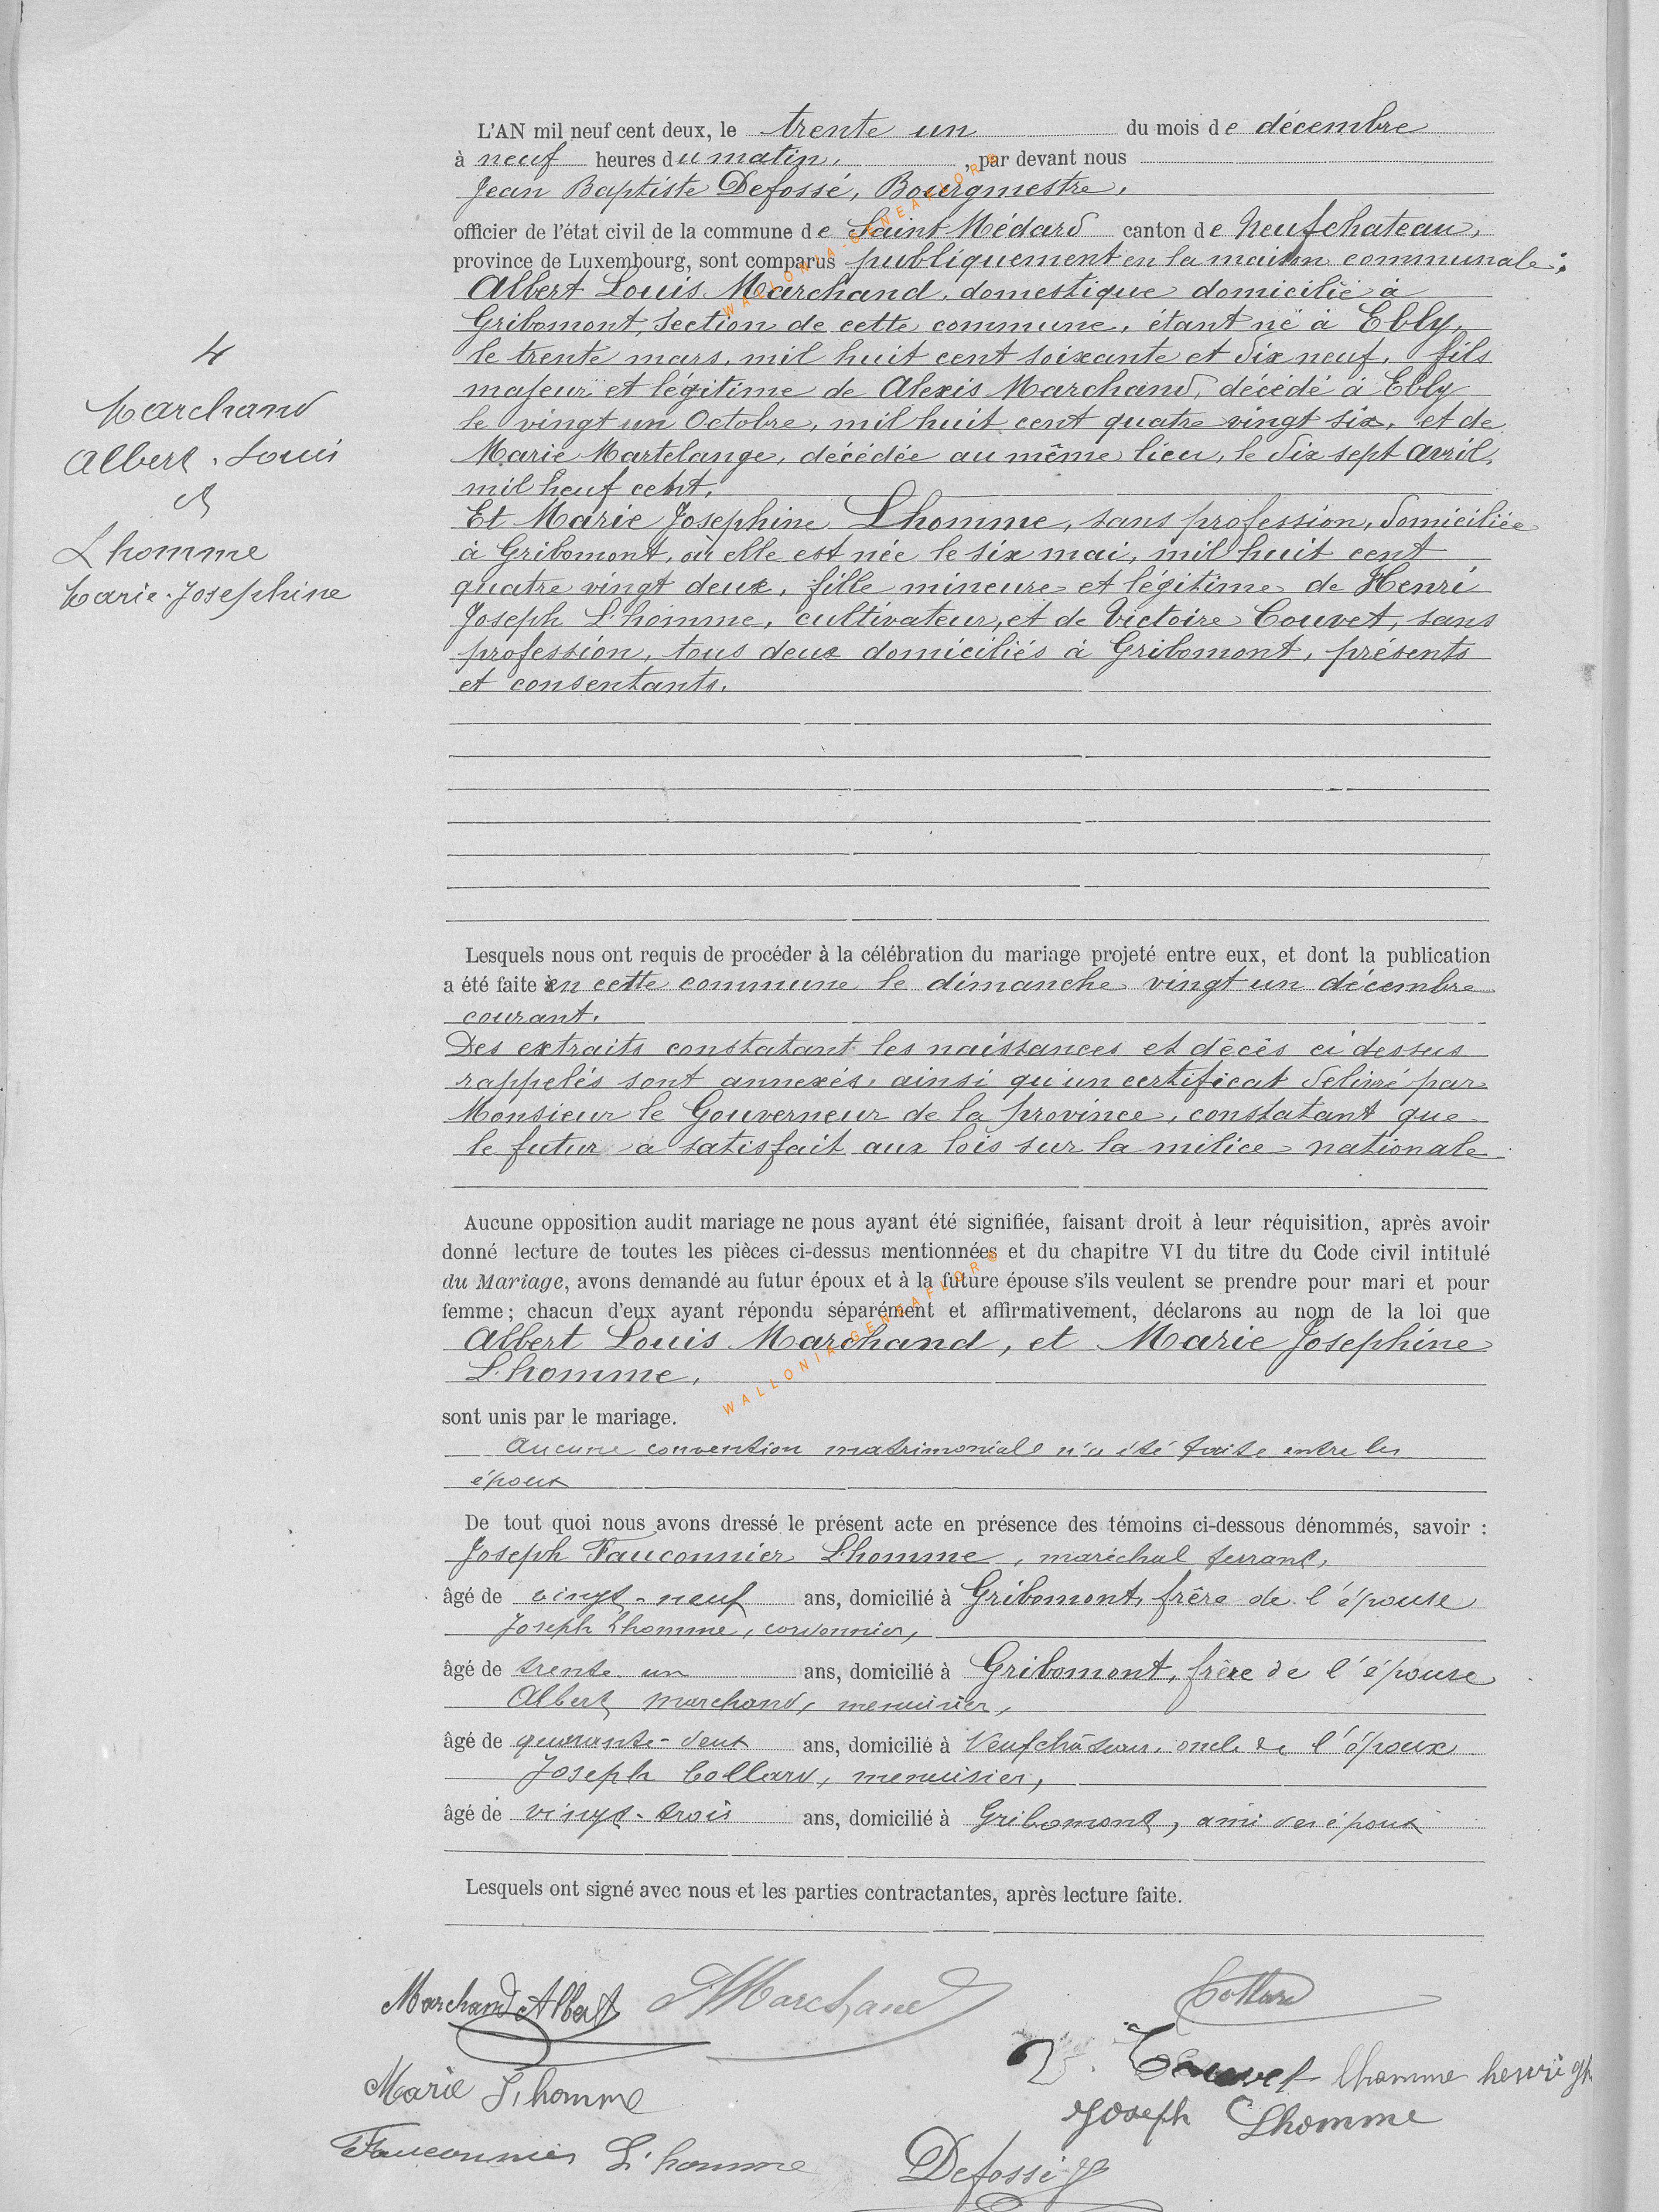 L'AN mil neuf cent deux, le trente un du mois de décembre
à neuf heures du matin, , par devant nous
Jean Baptiste Defossé, Bourgmestre,
officier de l'état civil de la commune de Saint Médard canton de Neufchateau,
province de Luxembourg, sont comparus publiquement en la maison communale:
Albert Louis Marchand, domestique domicilié à
Gribomont, section de cette commune, étant né à Ebly,
le trente mars, mil huit cent soixante et dix neuf, fils
majeur et légitime de Alexis Marchand, décédé à Ebly
le vingt un Octobre, mil huit cent quatre vingt six, et de
Marie Martelange, décédée au même lieu, le dix sept avril,
mil neuf cent.
4
Marchand
Albert. Louis
et
Lhomme
Marie. Josephine
Et Marie Josephine Lhomme, sans profession, domiciliée
à Gribomont, où elle est née le six mai, mil huit cent
quatre vingt deux, fille mineure et légitime de Henri
Joseph L'homme, cultivateur, et de Victoire Couvet, sans
profession, tous deux domiciliés à Gribomont, présents
et consentants.
Lesquels nous ont requis de procéder à la célébration du mariage projeté entre eux, et dont la publication
a été faite en cette commune le dimanche vingt un décembre
courant.
Des extraits constatant les naissances et décès ci dessus
rappelés sont annexés, ainsi qu'un certificat delivré par
Monsieur le Gouverneur de la province, constatant que
le futur a satisfait aux lois sur la milice nationale.
Aucune opposition audit mariage ne nous ayant été signifiée, faisant droit à leur réquisition, après avoir
donné lecture de toutes les pièces ci-dessus mentionnées et du chapitre VI du titre du Code civil intitulé
du Mariage, avons demandé au futur époux et à la future épouse s'ils veulent se prendre pour mari et pour
femme; chacun d'eux ayant répondu séparément et affirmativement, déclarons au nom de la loi que
Albert Louis Marchand, et Marie Josephine
L'homme,
sont unis par le mariage.
Aucune convention matrimoniale n'a été faite entre les
époux
De tout quoi nous avons dressé le présent acte en présence des témoins ci-dessous dénommés, savoir :
Joseph Fauconnier Lhomme, maréchal ferrant,
âgé de vingt-neuf ans, domicilié à Gribomont, frère de l'épouse
Joseph Lhomme, cordonnier,
âgé de trente un ans, domicilié à Gribomont, frère de l'épouse
Albert Marchand, menuisier,
âgé de quarante-deux ans, domicilié à Neufchâteau, oncle de l'époux
Joseph Collard, menuisier,
âgé de vingt-trois ans, domicilié à Gribomont, ami des époux
Lesquels ont signé avec nous et les parties contractantes, après lecture faite.
Marchand Albert Marchand Collard
V. Couvet lhomme henri
Marie L'homme
Joseph Lhomme
Fauconnier L'homme
Defossé
WALLONIA-GENEAFLOR®
WALLONIA-GENEAFLOR®